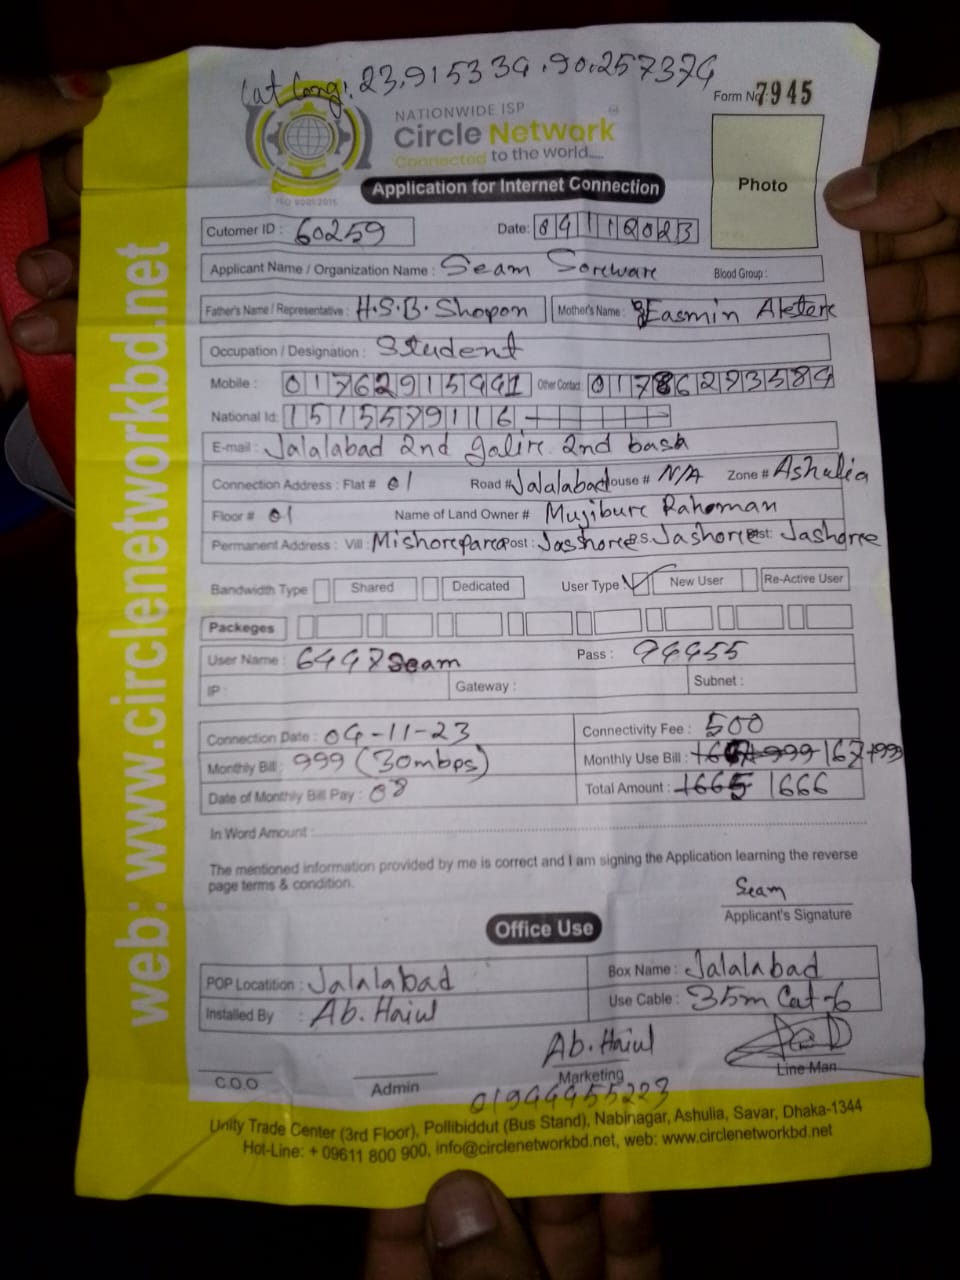 Lat Long: 23.915334, 90.257374
Form No: 7945
NATIONWIDE ISP
Circle Network
Connected to the world....
ISO 9001:2015
Application for Internet Connection
Photo
Cutomer ID : 60259
Date: 04 11 2023
Applicant Name / Organization Name : Seam Sorcware Blood Group :
Father's Name / Representative : H.S.B. Shopon Mother's Name : Easmin Akterk
Occupation / Designation : Student
Mobile : 01762915441 Other Contact: 01786293584
National Id: 1515579116
E-mail : Jalalabad 2nd galire 2nd basa
Connection Address : Flat # 01 Road # Jalalabad House # N/A Zone # Ashulia
Floor # 01 Name of Land Owner # Mujibure Rahoman
Permanent Address : Vill: Mishorepara Post: Jasshore P.S. Jashore Dist: Jashore
Bandwidth Type Shared Dedicated User Type New User Re-Active User
Packeges
User Name : 6447seam Pass : 94455
IP : Gateway : Subnet :
Connection Date : 04-11-23 Connectivity Fee : 500
Monthly Bill : 999 (30mbps) Monthly Use Bill : 167+999
Date of Monthly Bill Pay : 08 Total Amount : 1665 1666
In Word Amount :
The mentioned information provided by me is correct and I am signing the Application learning the reverse
page terms & condition.
Seam
Applicant's Signature
Office Use
POP Locatition : Jalalabad Box Name : Jalalabad
Installed By : Ab. Haiul Use Cable : 35m Cat-6
Ab. Haiul
C.O.O Admin Marketing Line Man
01944455223
Unity Trade Center (3rd Floor), Pollibiddut (Bus Stand), Nabinagar, Ashulia, Savar, Dhaka-1344
Hot-Line: + 09611 800 900, info@circlenetworkbd.net, web: www.circlenetworkbd.net
web: www.circlenetworkbd.net